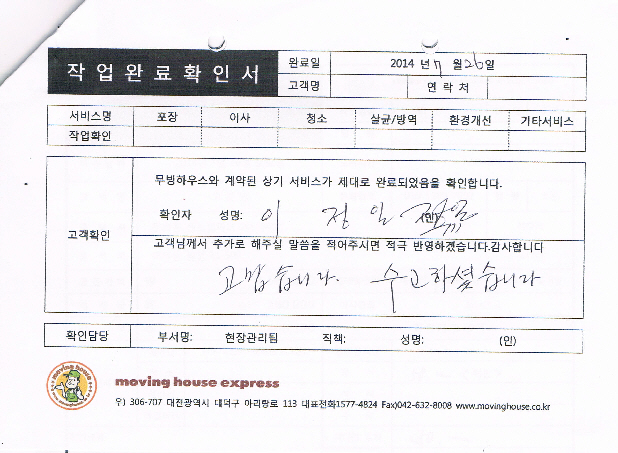 작업완료확인서
완료일 2014 년 7 월 26 일
고객명 연락처
서비스명 포장 이사 청소 살균/방역 환경개선 기타서비스
작업확인
고객확인
무빙하우스와 계약된 상기 서비스가 제대로 완료되었음을 확인합니다.
확인자 성명: 이 전 일 (인)
고객님께서 추가로 해주실 말씀을 적어주시면 적극 반영하겠습니다.감사합니다
고맙습니다. 수고하셨습니다
확인담당 부서명: 현장관리팀 직책: 성명: (인)
moving house
moving house express
우) 306-707 대전광역시 대덕구 아리랑로 113 대표전화1577-4824 Fax)042-632-8008 www.movinghouse.co.kr